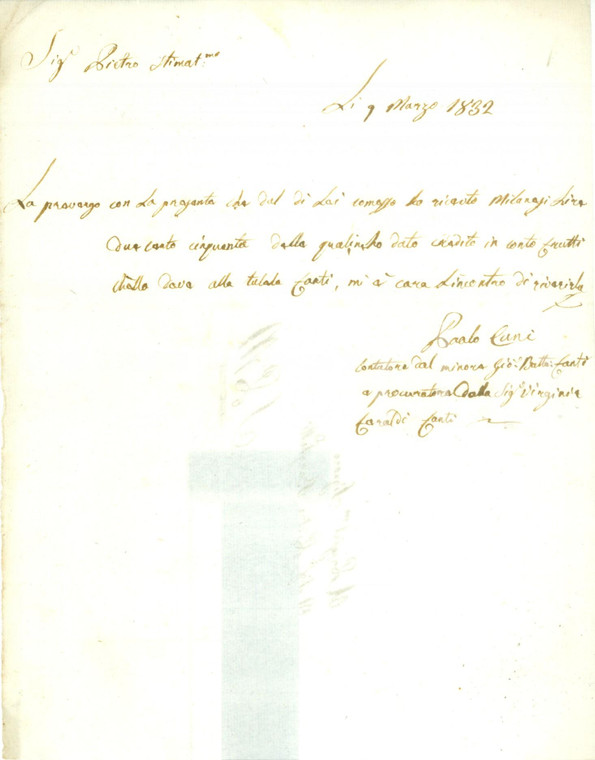 Sig.r Pietro Stimat.mo
Li 9 Marzo 1832
La prevengo con la presente che dal di Lei comesso ho ricevto Milanesi Lire
due cento cinquanta delle quali ho dato credito in conto frutti
ch'ella deve alla tutela Conti, mi è cara l'incontro di riverirla
Paolo
contutore del minore Gio: Batta: Conti
e procuratore della Sig.ra Virginia
Conti